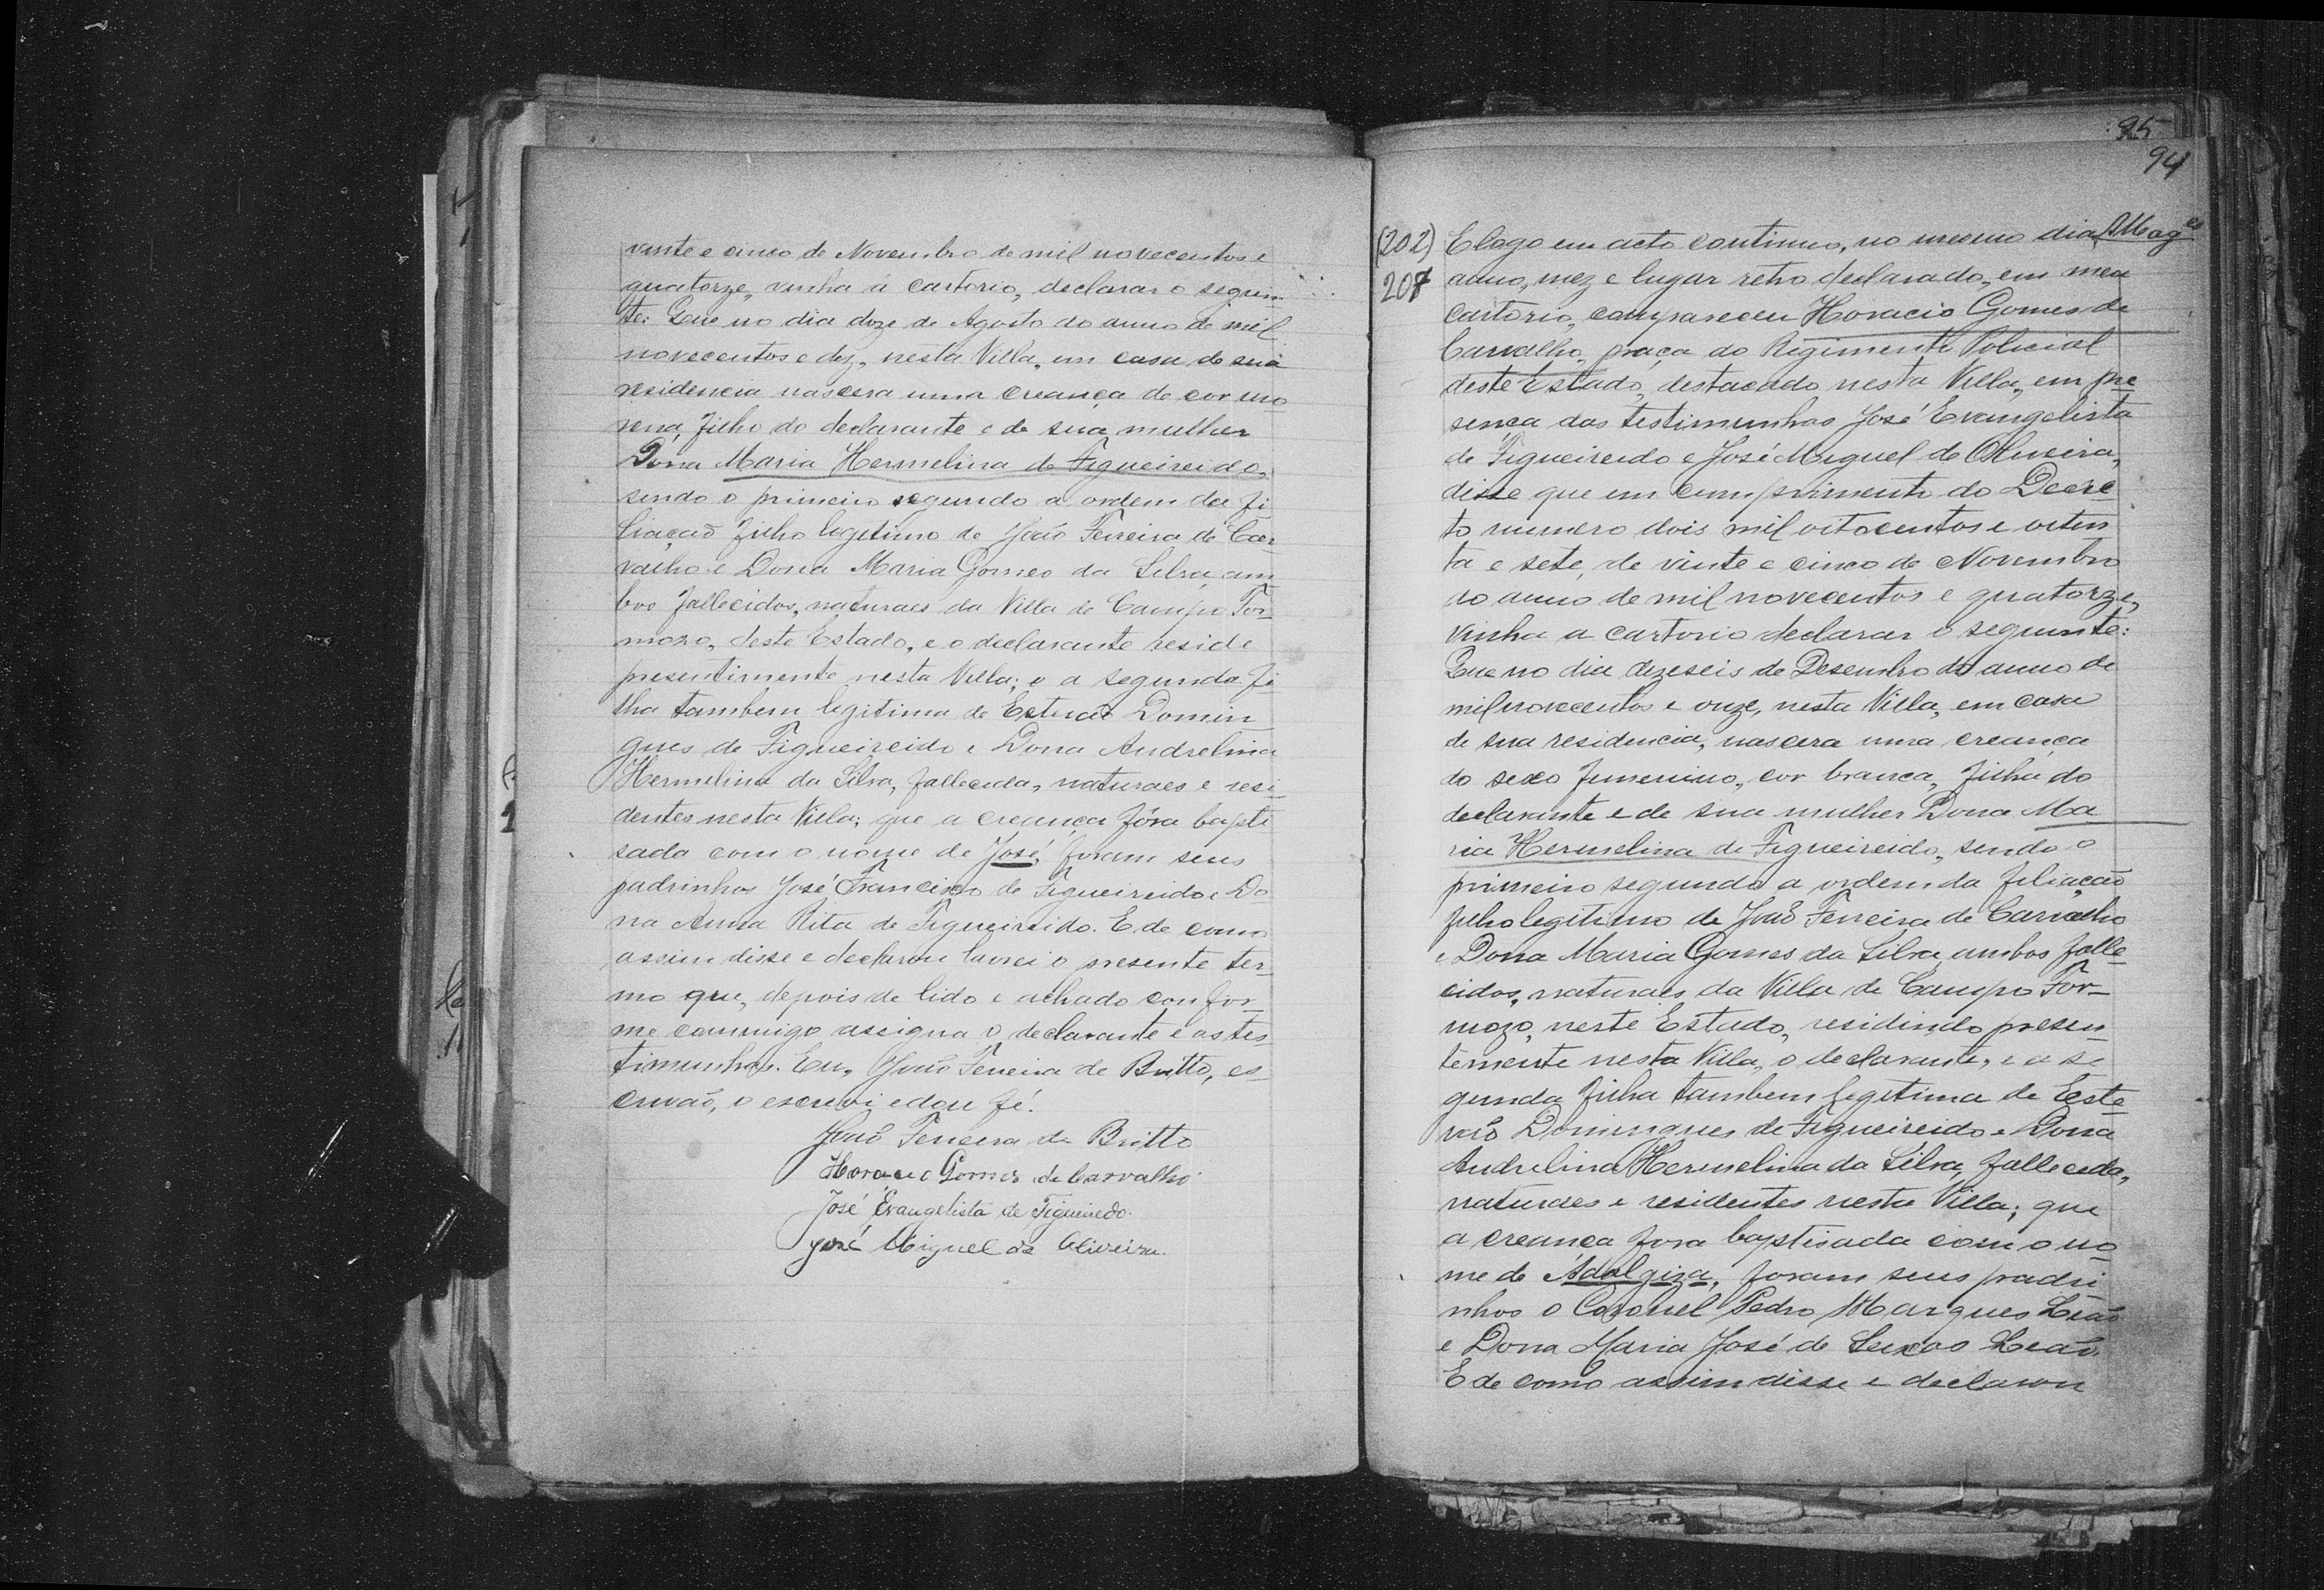 vinte e cinco de Novembro de mil novecentos e
quatorze, vinha á cartorio, declarar o seguin
te: Que no dia doze de Agosto do anno de mil
novecentos e dez, nesta Villa, em casa de sua
residencia nascera uma creança de cor mo
rena, filho do declarante e de sua mulher
Dona Maria Hermelina de Figueireido,
sendo o primeiro segundo a ordem da fi
liação filho legitimo de João Ferreira de Car
valho e Dona Maria Gomes da Silva, am
bos fallecidos, naturaes da Villa de Campo For
mozo, deste Estado, e o declarante reside
presentimente nesta Villa; e a segunda fi
lha tambem legitima de Estevão Domin
gues de Figueireido e Dona Andrelina
Hermelina da Silva, fallecida, naturaes e resi
dentes nesta Villa; que a creança fôra bapti
sada com o nome de José, foram seus
padrinhos José Francisco de Figueireido e Do
na Anna Rita de Figueireido. E de como
assim disse e declarou lavrei o presente ter
mo que, depois de lido e achado confor
me commigo assigna o declarante e as tes
timunhas. Eu, João Ferreira de Britto, es
crivão, o escrevi e dou fé.
João Ferreira de Britto
Horacio Gomes de Carvalho
José Evangelista de Figueiredo.
José Miguel de Oliveira.
95
94
(202) E logo em acto continuo, no mesmo dia,
207 anno, mez e lugar retro declarado, em meu
cartorio, compareceu Horacio Gomes de
Carvalho, praça do Regimento Policial
deste Estado, destacado nesta Villa, em pre
sença das testimunhas José Evangelista
de Figueireido e José Miguel de Oliveira,
disse que em cumprimento do Decre
to numero dois mil oitocentos e oiten
ta e sete, de vinte e cinco de Novembro
do anno de mil novecentos e quatorze,
vinha a cartorio declarar o seguinte:
Que no dia dezeseis de Desembro do anno de
mil novecentos e onze, nesta Villa, em casa
de sua residencia, nascera uma creança
do sexo femenino, cor branca, filha do
declarante e de sua mulher Dona Ma
ria Hermelina de Figueireido, sendo o
primeiro segundo a ordem da filiação
filho legitimo de João Ferreira de Carvalho
e Dona Maria Gomes da Silva, ambos falle
cidos, naturaes da Villa de Campo For
mozo, neste Estado, residindo presen
temente nesta Villa, o declarante, e a se
gunda filha tambem legitima de Este
vão Domingues de Figueireido e Dona
Andrelina Hermelina da Silva, fallecida,
naturaes e residentes nesta Villa; que
a creança fora baptisada com o no
me de Adalgiza, foram seus padri
nhos o Coronel Pedro Marques Leão
e Dona Maria José de Seixas Leão.
E de como assim disse e declarou